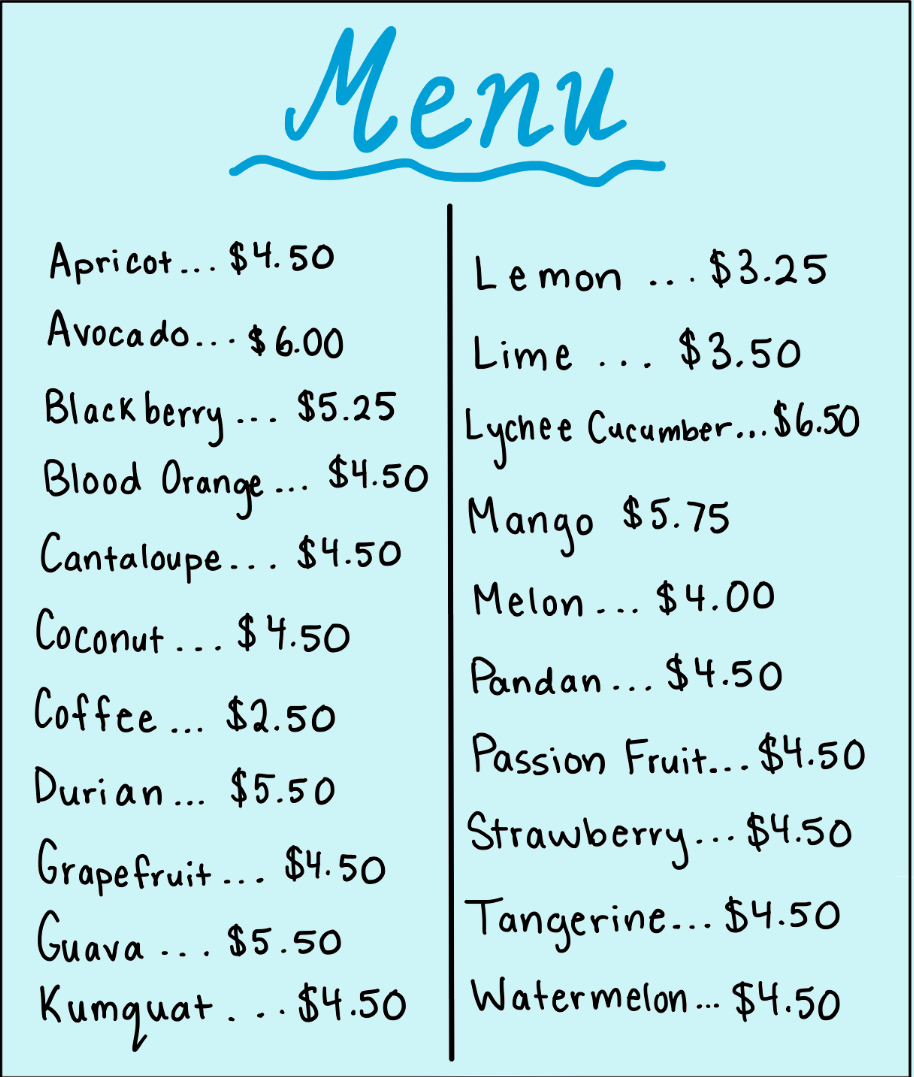 Menu
Apricot... $4.50
Avocado... $6.00
Blackberry... $5.25
Blood Orange... $4.50
Cantaloupe... $4.50
Coconut... $4.50
Coffee... $2.50
Durian... $5.50
Grapefruit... $4.50
Guava... $5.50
Kumquat... $4.50
Lemon... $3.25
Lime... $3.50
Lychee Cucumber... $6.50
Mango $5.75
Melon... $4.00
Pandan... $4.50
Passion Fruit... $4.50
Strawberry... $4.50
Tangerine... $4.50
Watermelon... $4.50